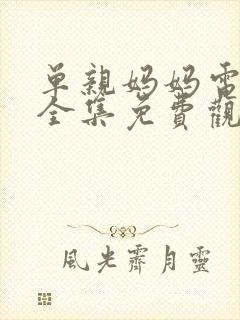 單親媽媽電
全集免費觀
風光霽月靈